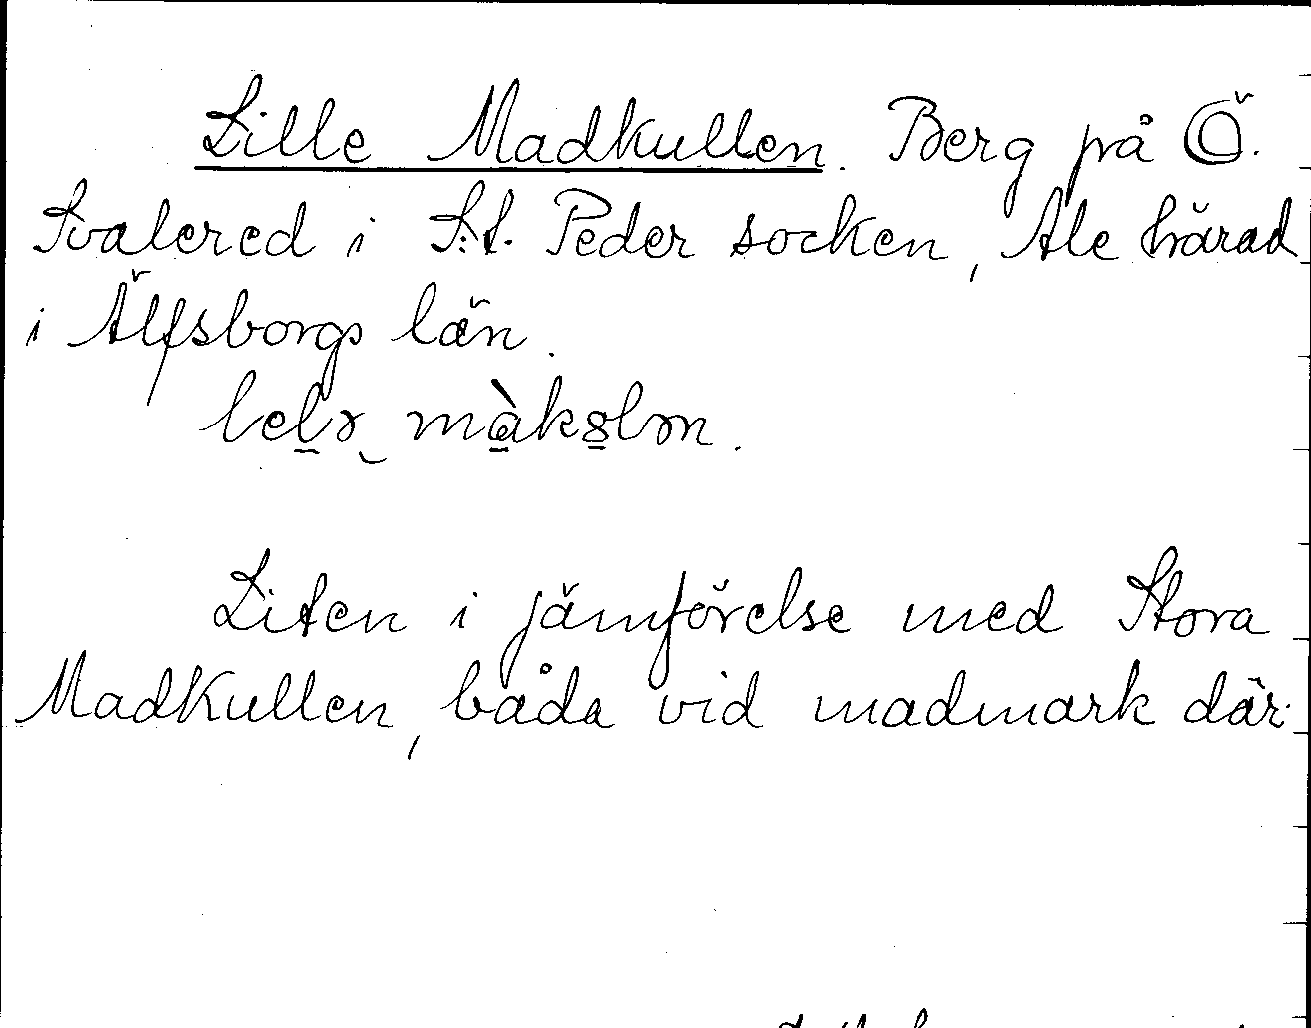 Lille Madkullen. Berg på Ö.
Svalered i S:t. Peder socken, Ale härad
i Älfsborgs län.
Liten i jämförelse med Stora
Madkullen, båda vid madmark där.